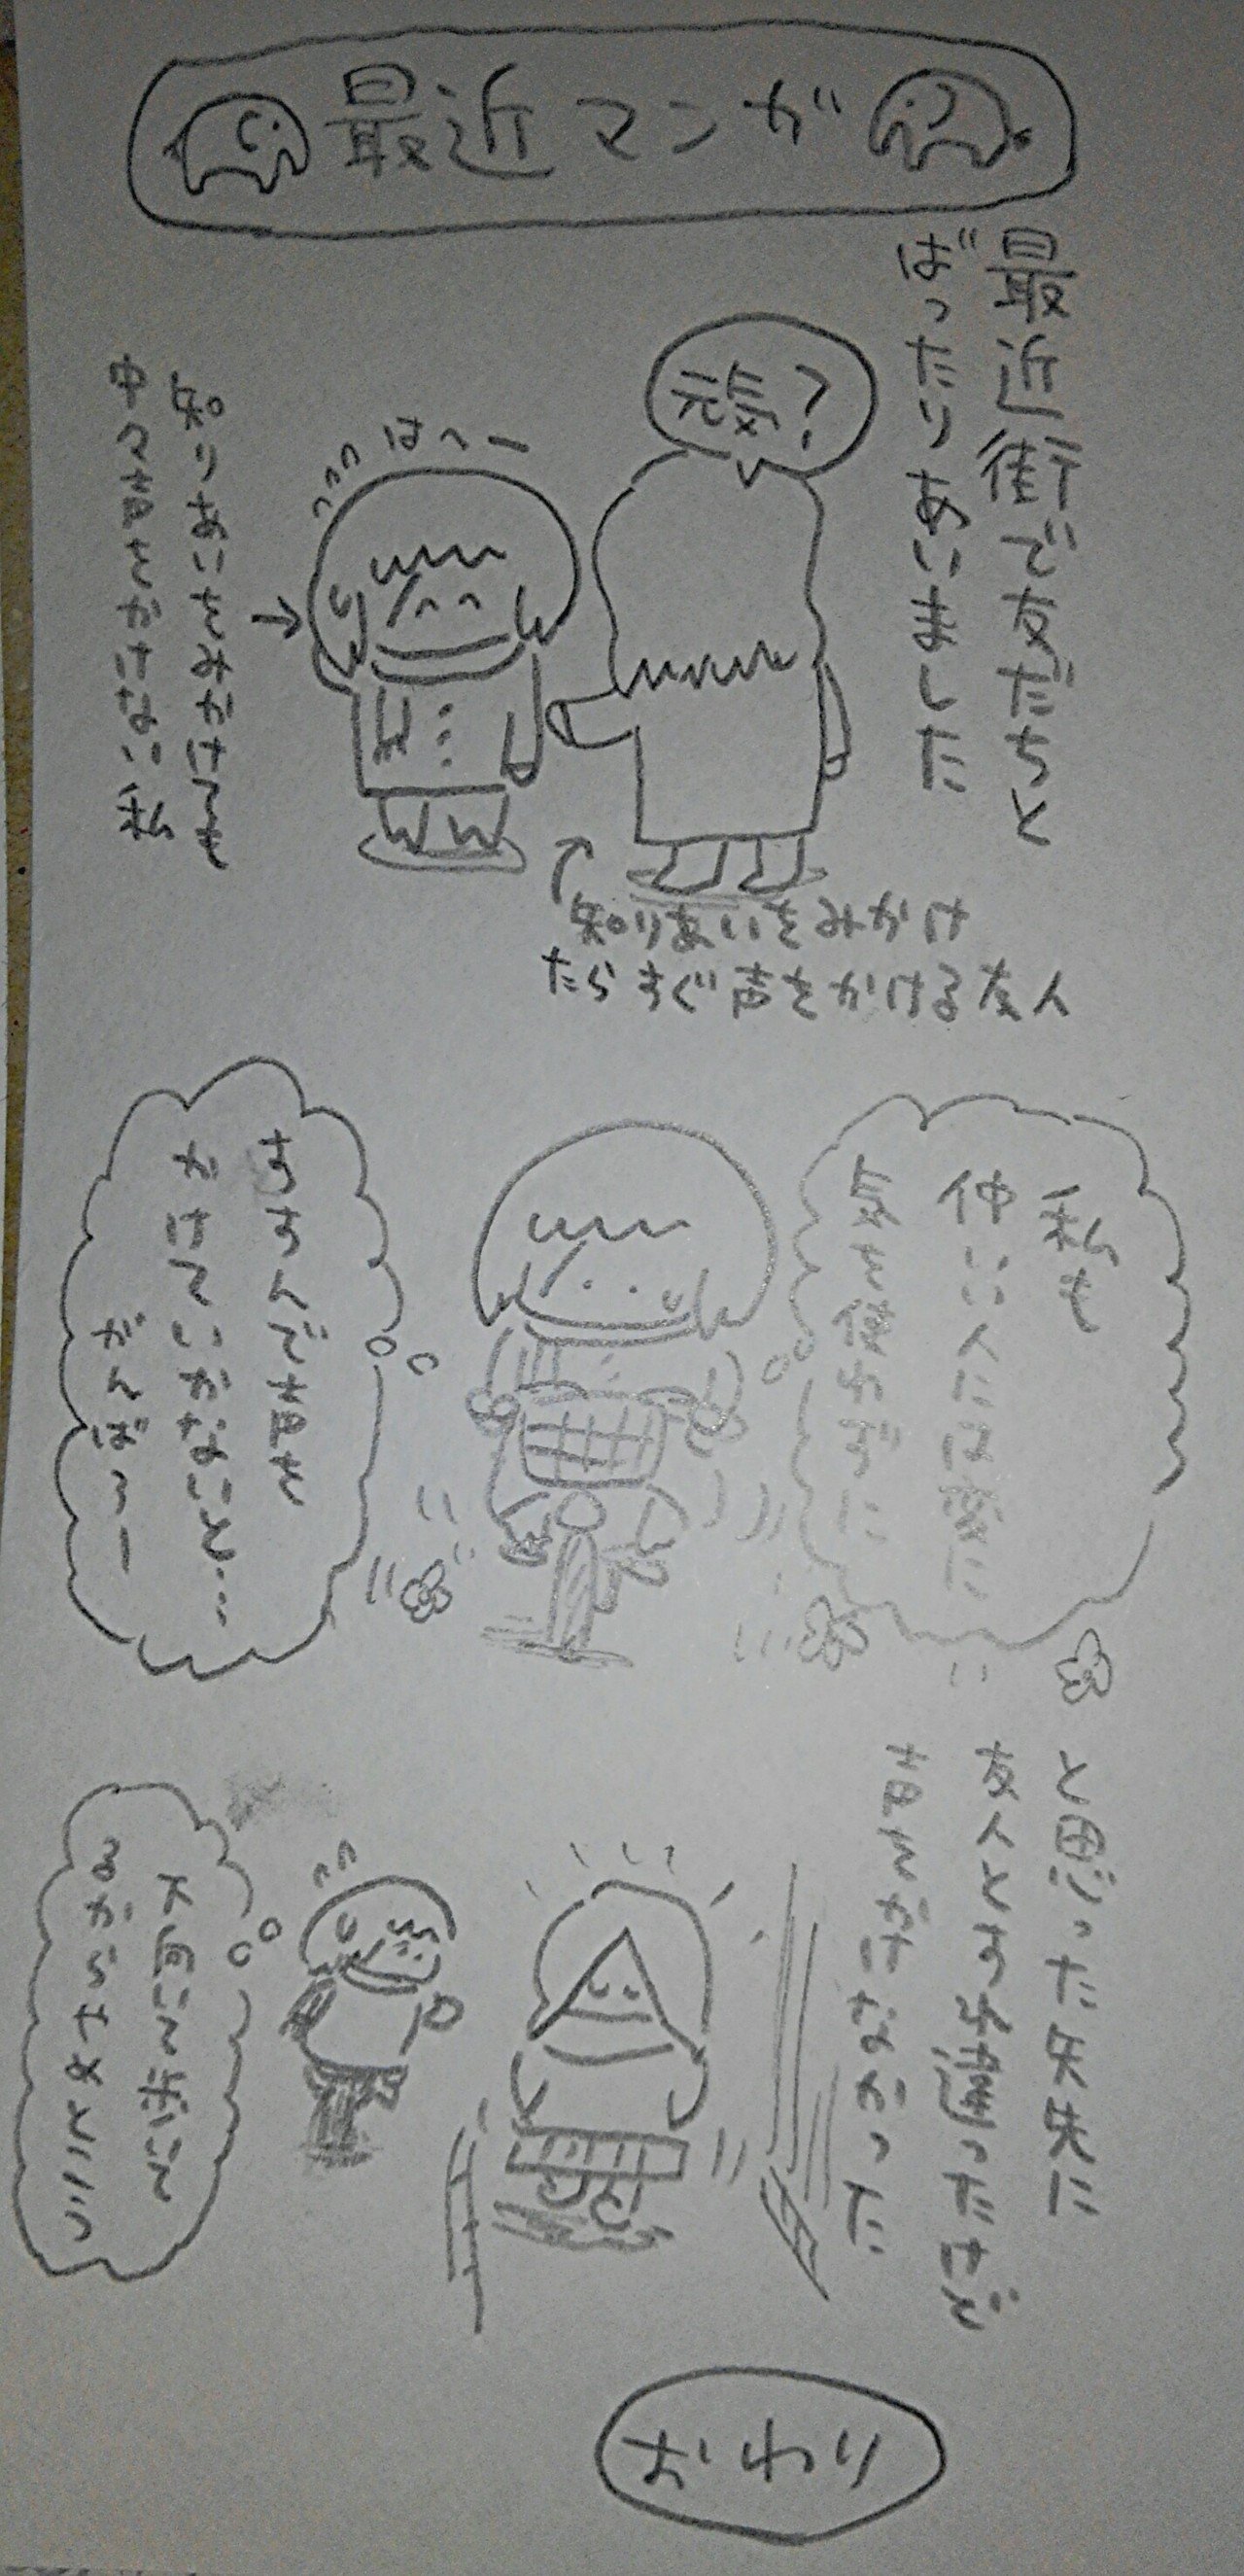 最近マンガ
最近街で友だちと
ばったりあいました
元気?
はへー
知りあいをみかけても
中々声をかけない私
知りあいをみかけ
たらすぐ声をかける友人
私も
仲いい人には変に
気を使わずに
すすんで声を
かけていかないと…
がんばろー
と思った矢先に
友人とすれ違ったけど
声をかけなかった
下向いて歩いて
るからやめとこう
おわり